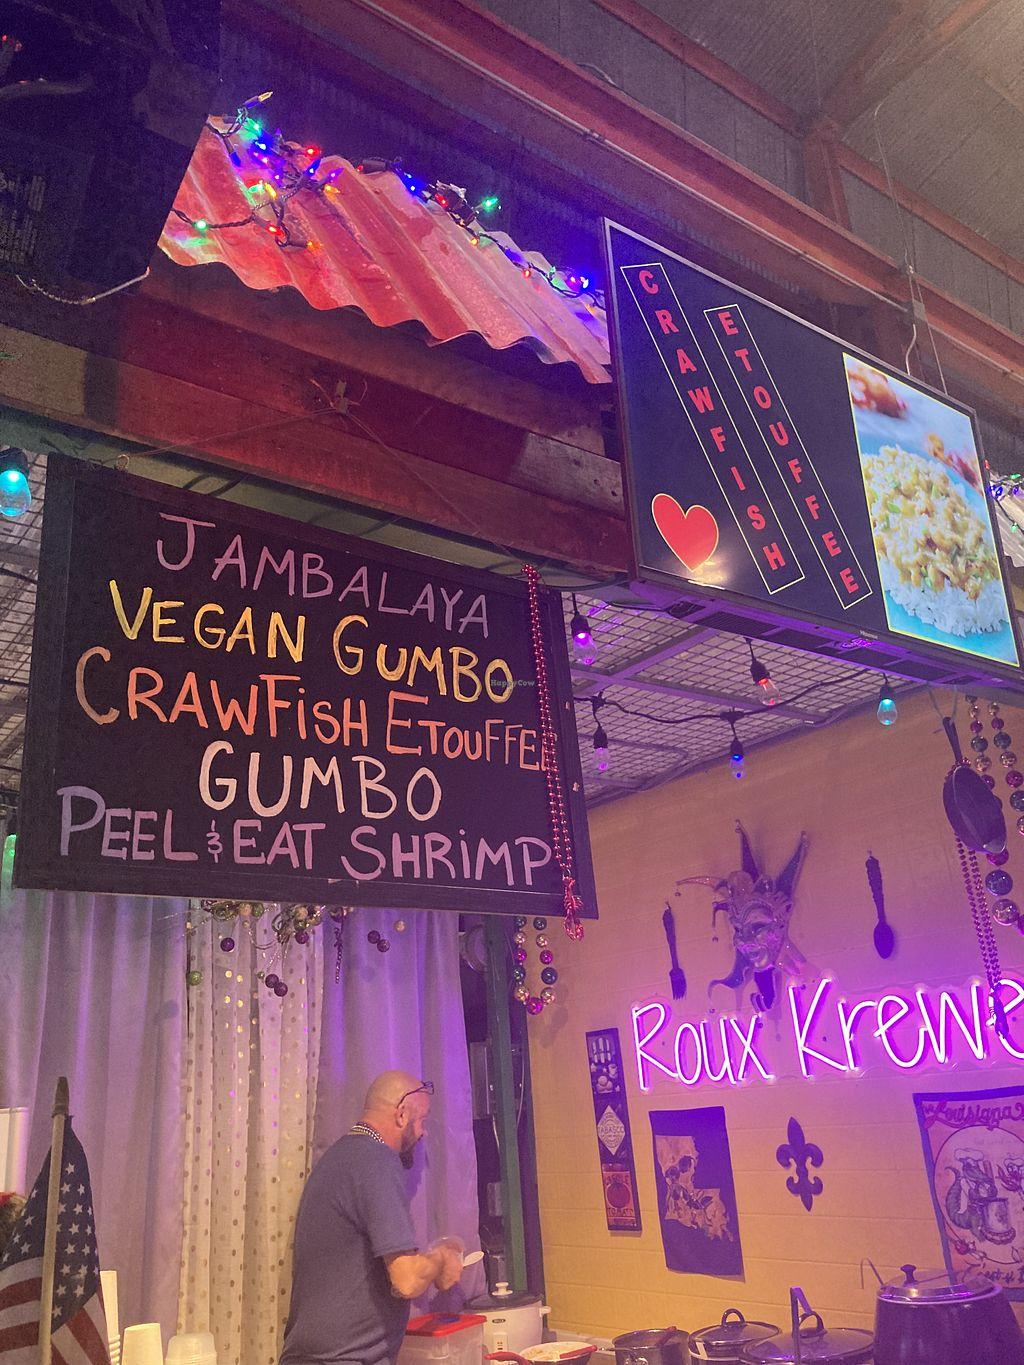 CRAWFISH
ETOUFFEE
JAMBALAYA
VEGAN GUMBO
HappyCow
CRAWFiSH ETOUFFEE
GUMBO
PEEL & EAT SHRiMP
Roux Krewe
Louisiana
TABASCO